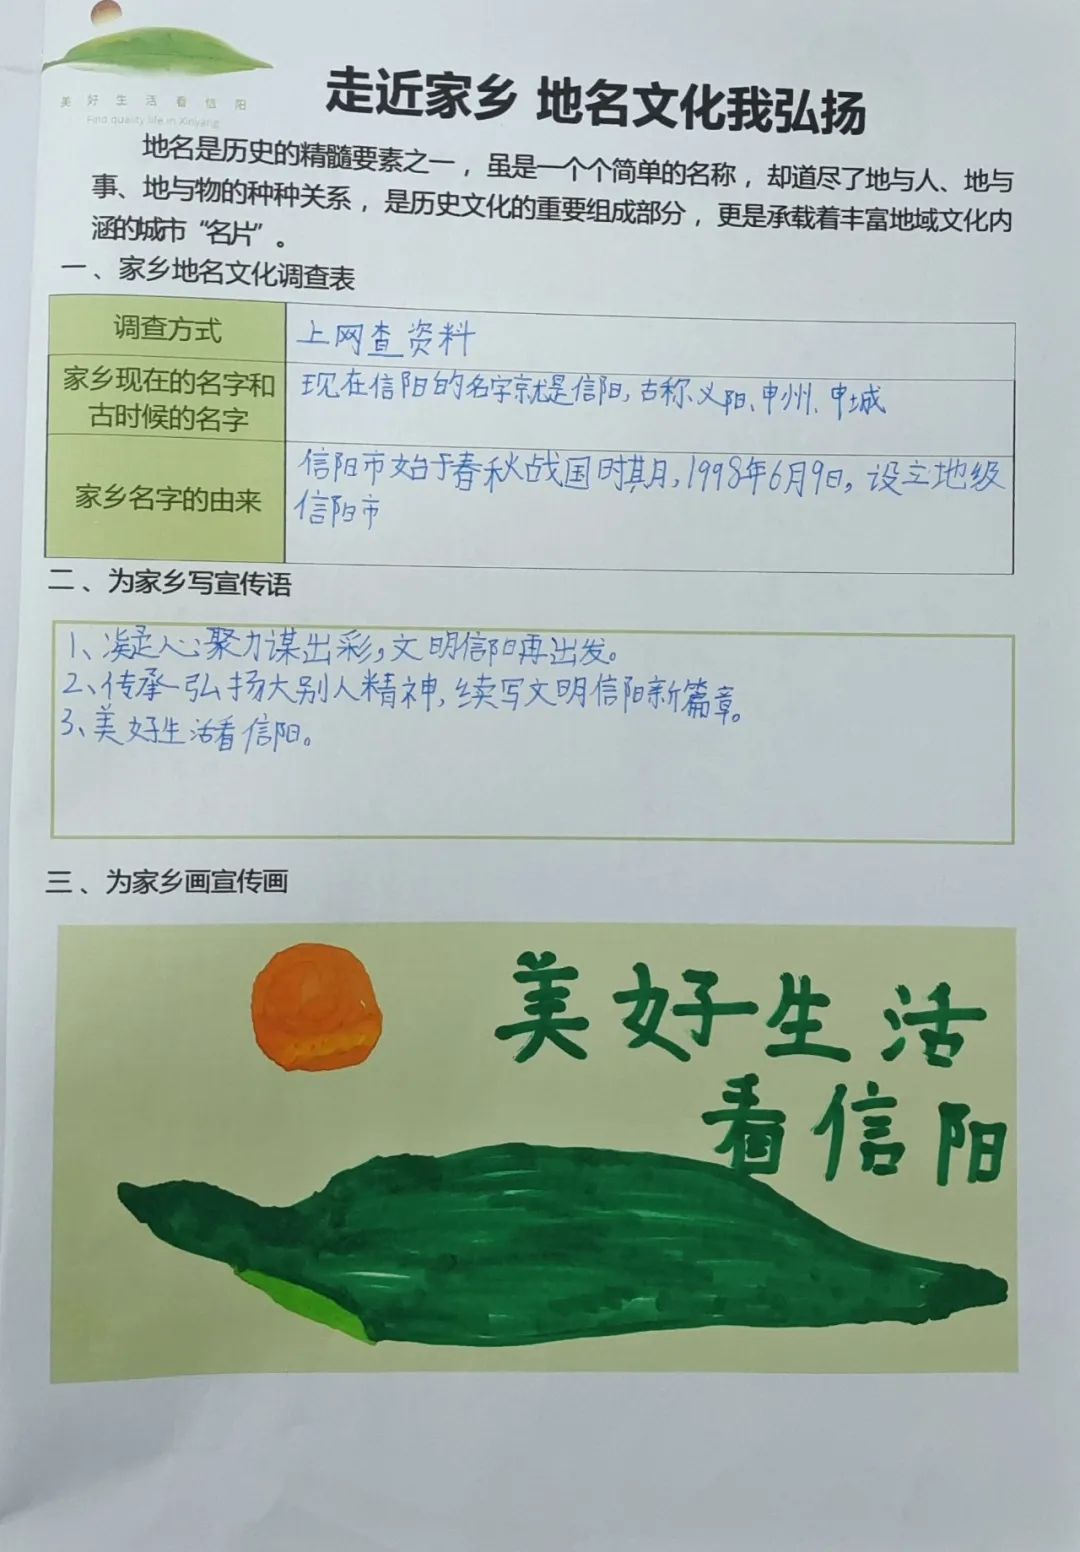 美好生活看信阳
Find quality life in Xinyang
走近家乡 地名文化我弘扬
地名是历史的精髓要素之一，虽是一个个简单的名称，却道尽了地与人、地与
事、地与物的种种关系，是历史文化的重要组成部分，更是承载着丰富地域文化内
涵的城市“名片”。
一、家乡地名文化调查表
调查方式
上网查资料
家乡现在的名字和
古时候的名字
现在信阳的名字就是信阳,古称义阳、申州、申城
家乡名字的由来
信阳市始于春秋战国时期,1998年6月9日,设立地级
信阳市
二、为家乡写宣传语
1、凝心聚力谋出彩,文明信阳再出发。
2、传承弘扬大别人精神,续写文明信阳新篇章。
3、美好生活看信阳。
三、为家乡画宣传画
美好生活
看信阳